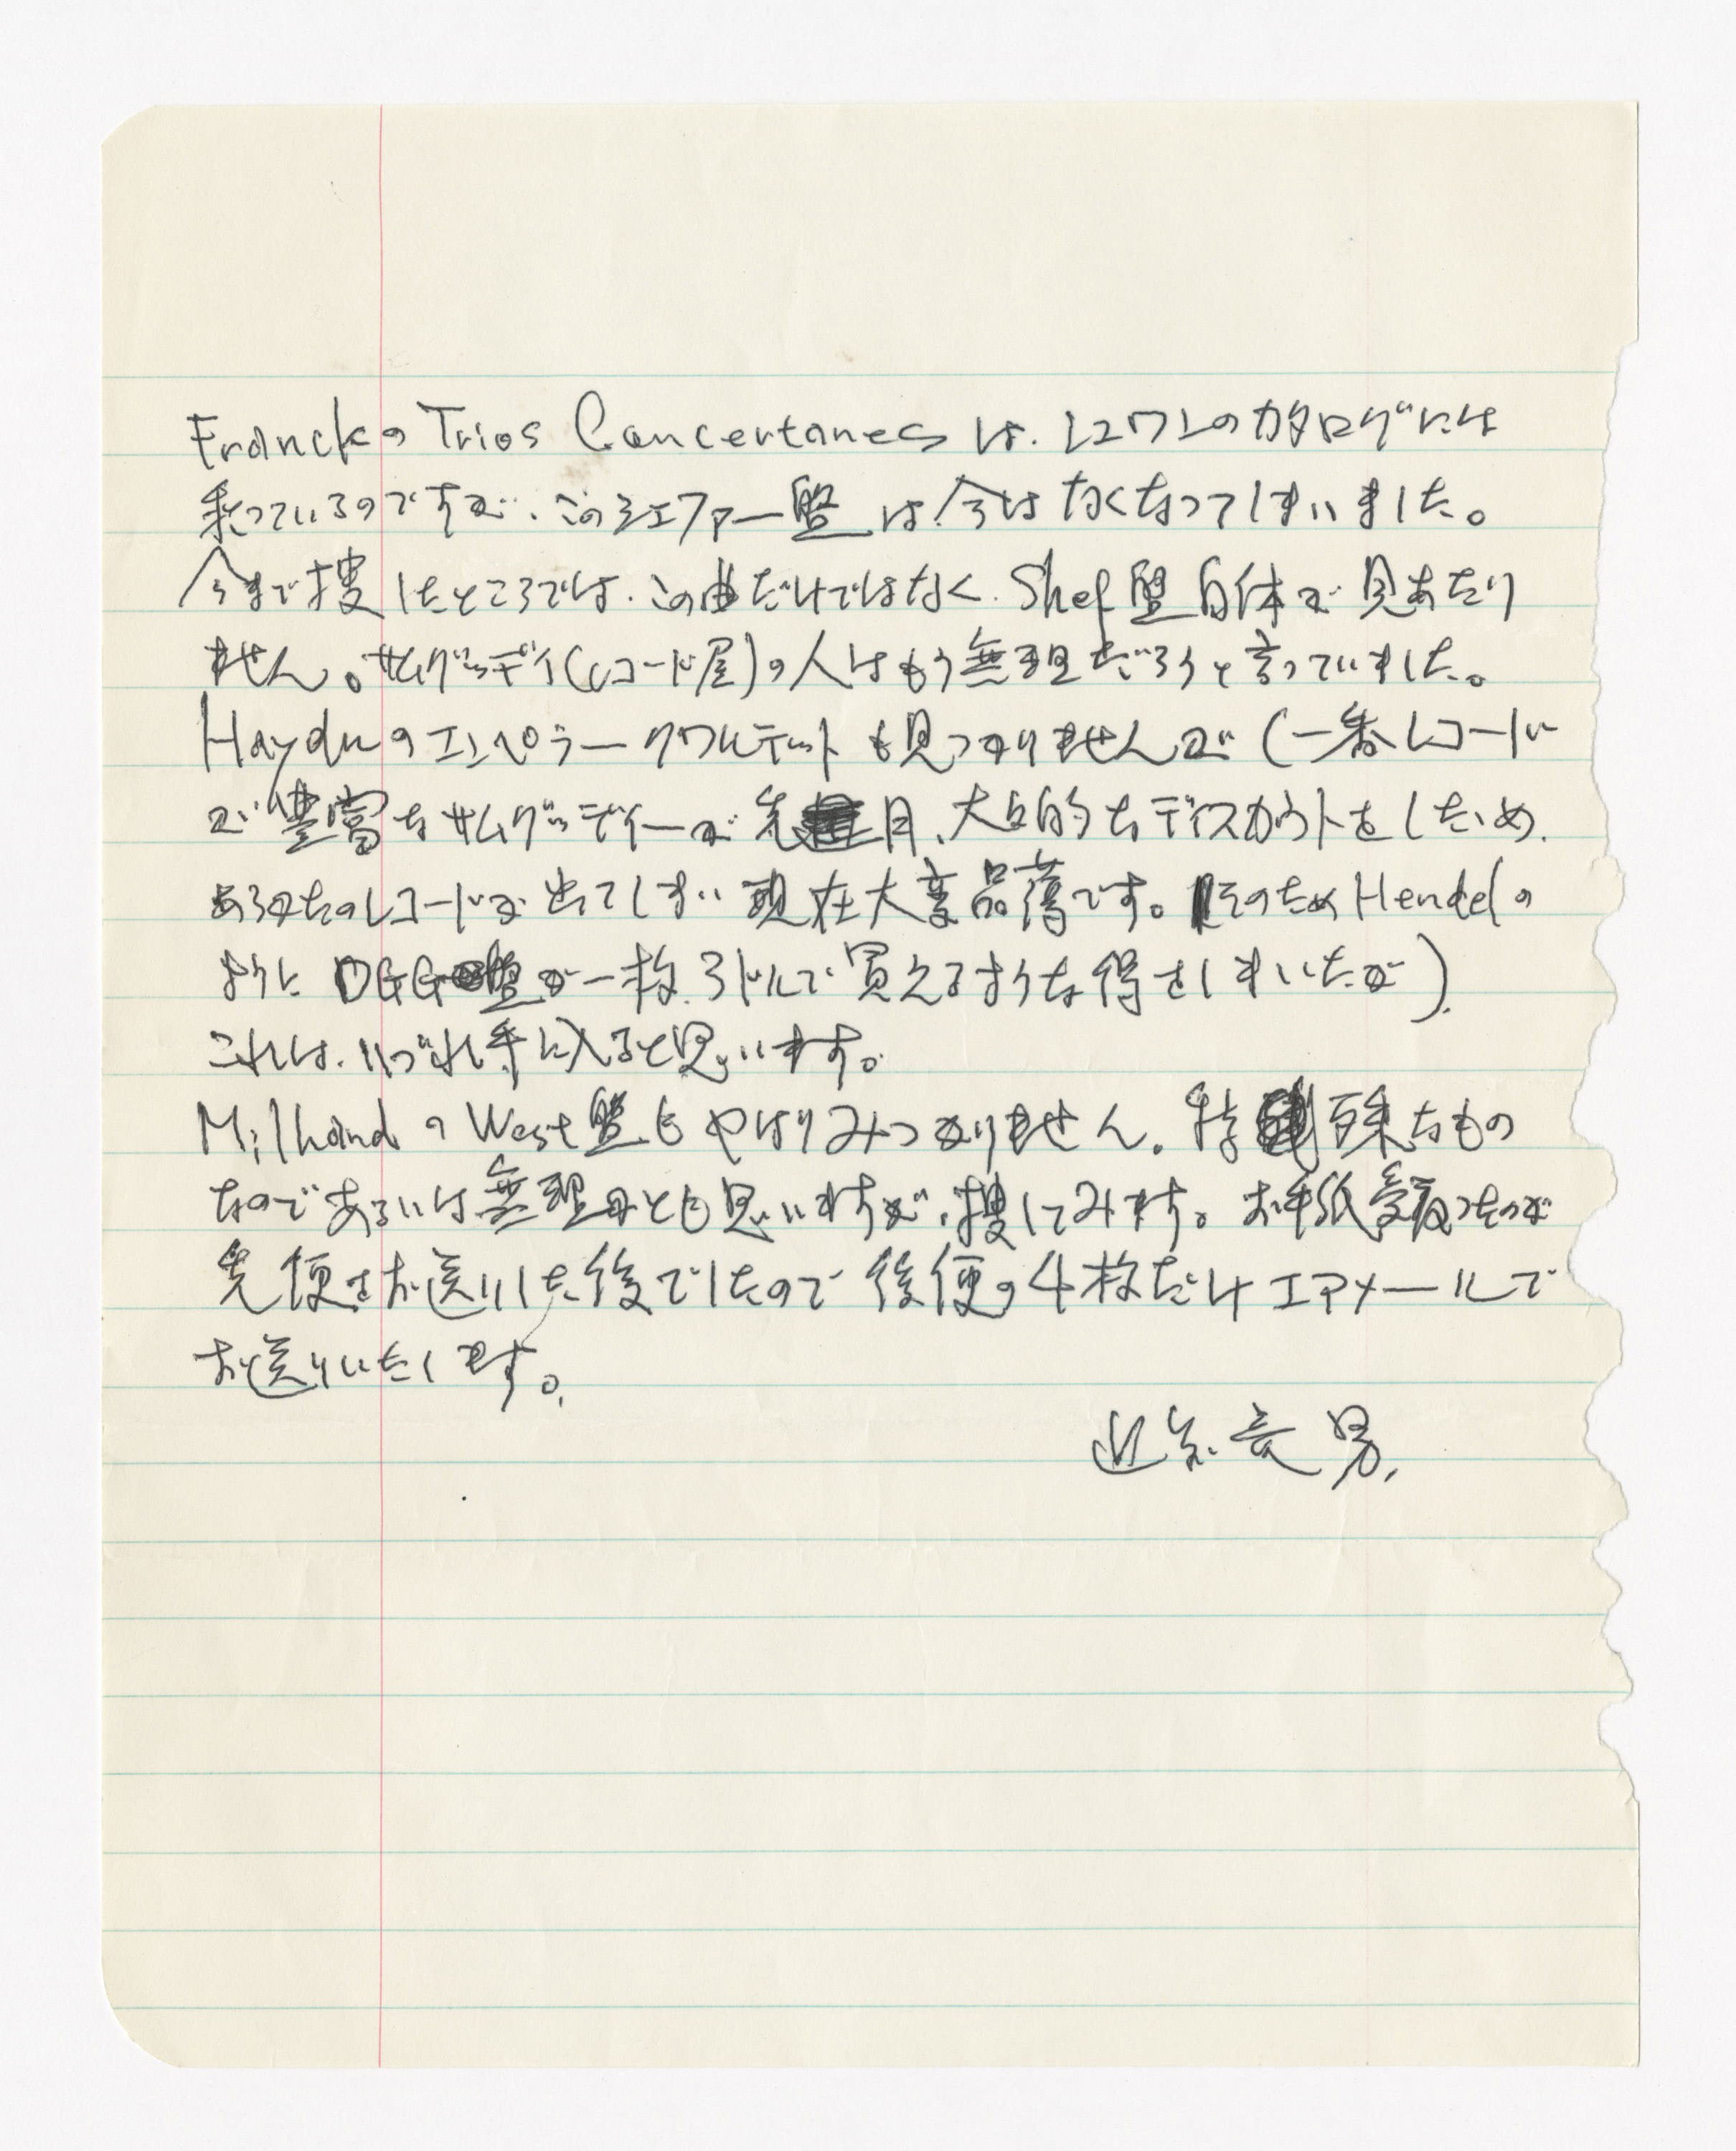 Franckの Trios Concertanes は、シュワンのカタログには
乗っているのですが、このシェファー盤は今はなくなってしまいました。
今まで捜したところでは、この曲だけではなく、Shef盤自体が見あたり
ません。サムグッディ(レコード屋)の人はもう無理だろうと言っていました。
Haydnのエンペラークワルテットも見つかりませんが(一番レコード
が豊富なサムグッディーが先月、大々的なディスカウトをしため、
あらかたのレコードが出てしまい現在大変品薄です。そのためHendelの
ように DGG盤が一枚3ドルで買えるような得をしましたが)
これは、いづれ手に入ると思います。
MilhaudのWest盤もやはりみつかりません。特殊なもの
なのであるいは無理かとも思いますが、捜してみます。お手紙受取ったのが
先便をお送りした後でしたので後便の4枚だけエアメールで
お送りいたします。
近
男